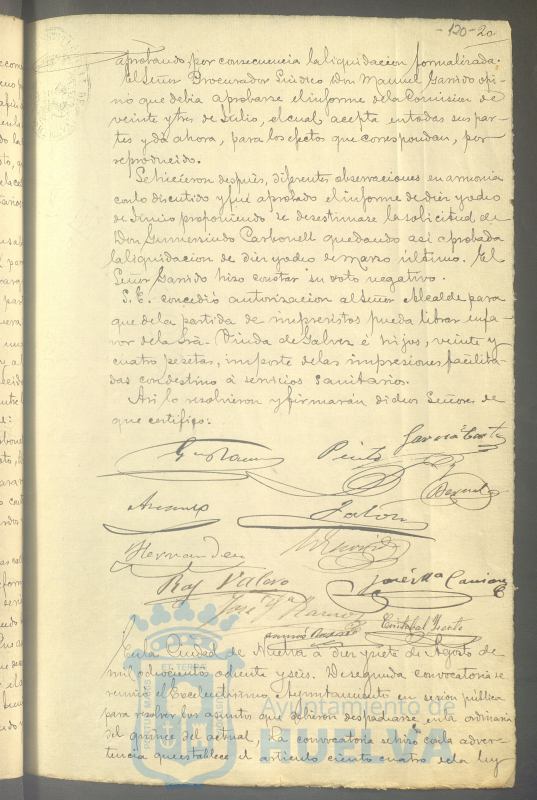 - 120 - 20
aprobando, por consecuencia la liquidacion formalizada.
El Señor Procurador Síndico Don Manuel Garrido opi-
nó que debia aprobarse el informe de la Comision de
veinte y tres de Julio, el cual acepta en todas sus par-
tes y dá ahora, para los efectos que correspondan, por
reproducido.
Se hicieron despues, diferentes observaciones en armonia
con lo discutido y fué aprobado el informe de diez y ocho
de Junio proponiendo se desestimase la solicitud de
Don Gumersindo Carbonell quedando asi aprobada
la liquidacion de diez y ocho de marzo último. El
Señor Garrido hizo constar su voto negativo.
S. E. concedió autorizacion al Señor Alcalde para
que de la partida de imprevistos pueda librar en fa-
vor de la Sra. Viuda de Galvez é hijos, veinte y
cuatro pesetas, importe de las impresiones facilita-
das con destino á servicios sanitarios.
Asi lo resolvieron y firmarán dichos Señores de
que certifico:
Pinto Garcia
Jalon
Hernandez
Valero José Mª
José Mª
Cristobal
En la Ciudad de Huelva á diez y siete de Agosto de
mil ochocientos ochenta y seis. De segunda convocatoria se
reunió el Excelentísimo Ayuntamiento en sesion pública
para resolver los asuntos que debieron despacharse en la ordinaria
del quince del actual. La convocatoria se hizo con la adver-
tencia que establece el artículo ciento cuatro de la ley
PORTUS MARIS ET TERRÆ CUSTODIA
Ayuntamiento de
HUELVA